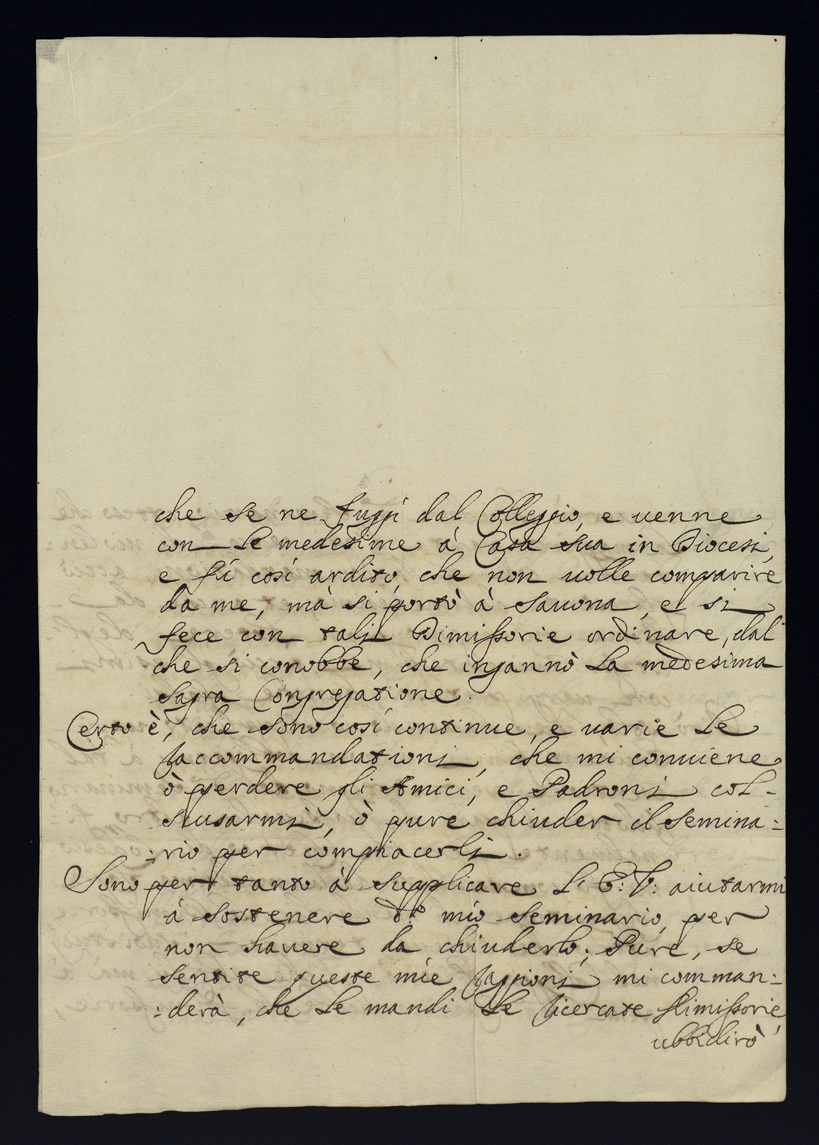 che se ne fuggì dal Colleggio, e venne
con le medesime à Casa sua in Diocesi,
e fù così ardito, che non volle comparire
da me, mà si portò à Savona, e si
fece con tali Dimissorie ordinare, dal
che si conobbe, che ingannò la medesima
Sagra Congregatione.
Certo è, che sono così continue, e varie le
raccommandationi, che mi conviene
ò perdere gli Amici, e Padroni col-
scusarmi, ò pure chiuder il semina=
=rio per compiacerli.
Sono per tanto à supplicare l' E: V: aiutarmi
à sostenere do mio seminario, per
non havere da chiuderlo; Pure, se
sentite queste mie raggioni mi comman=
=derà, che le mandi le ricercate dimissorie
ubbidirò